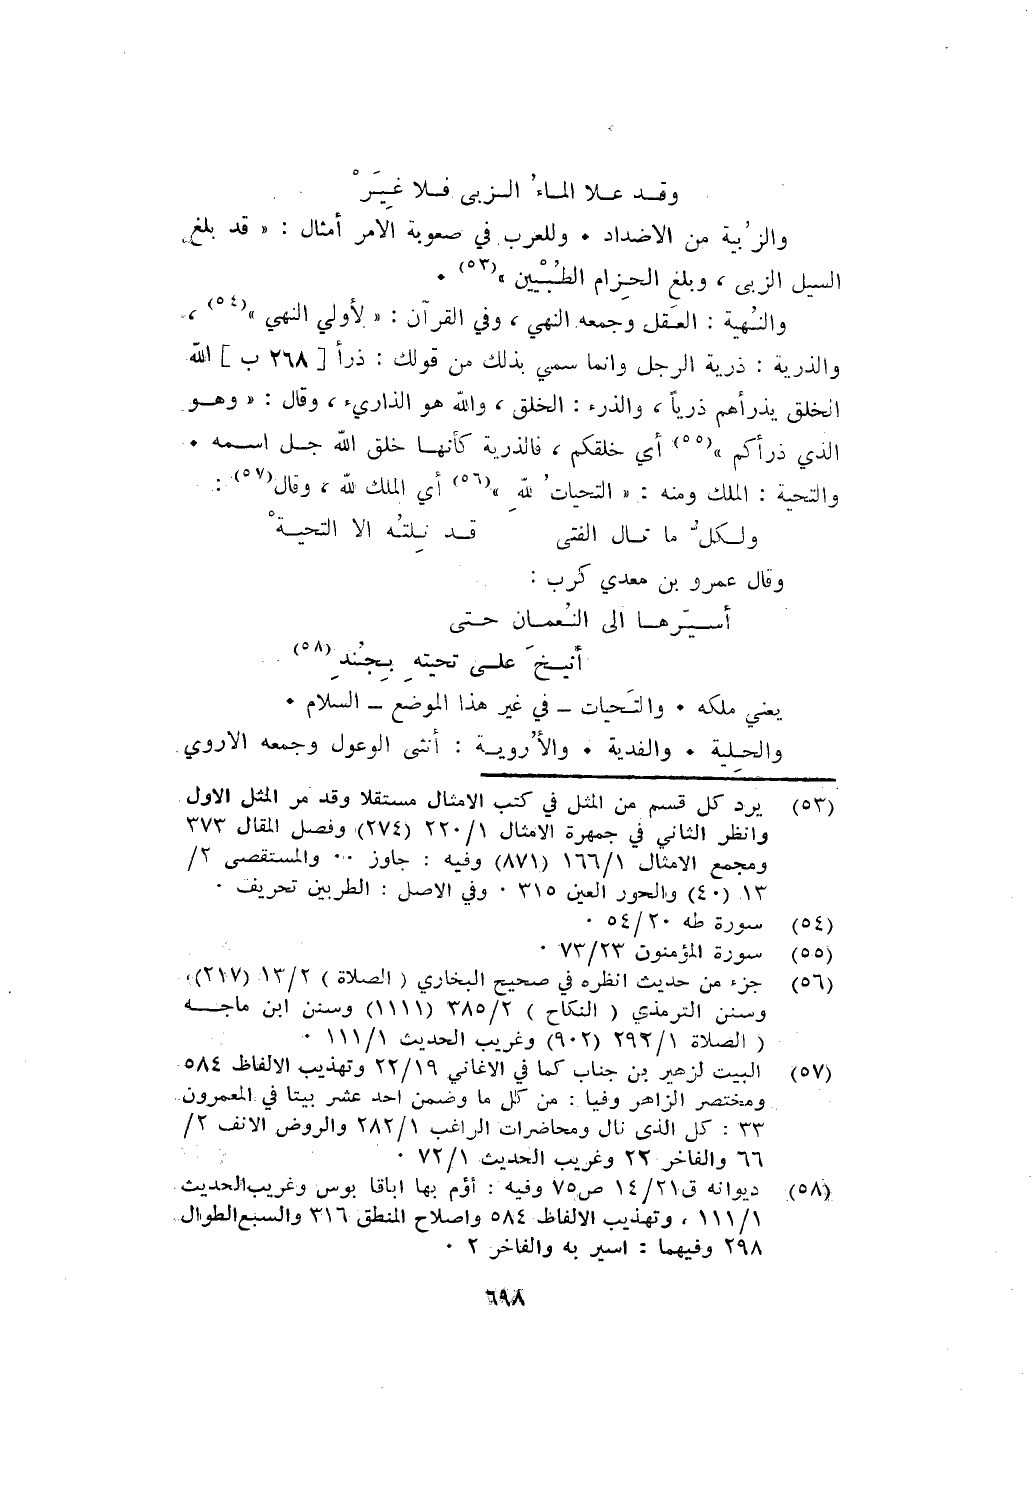 وقد علا الماءُ الزبى فلا غِيَرْ
والزُبية من الاضداد • وللعرب في صعوبة الامر أمثال : « قد بلغ
السيل الزبى ، وبلغ الحِزام الطُبْيين »(٥٣) •
والنُهية : العَقل وجمعه النهي ، وفي القرآن : « لأولي النهي »(٥٤) ،
والذرية : ذرية الرجل وانما سمي بذلك من قولك : ذرأ [ ٢٦٨ ب ] الله
الخلق يذرأهم ذرياً ، والذرء : الخلق ، والله هو الذاريء ، وقال : « وهو
الذي ذرأكم »(٥٥) أي خلقكم ، فالذرية كأنها خلق الله جل اسمه •
والتحية : الملك ومنه : « التحياتُ للهِ »(٥٦) أي الملك لله ، وقال(٥٧) :
ولكلُ ما نال الفتى قد نِلتُه الا التحيةْ
وقال عمرو بن معدي كرب :
أسيّرها الى النُعمان حتى
أُنيخَ على تحيتهِ بِجُندِ(٥٨)
يعني ملكه • والتَحيات – في غير هذا الموضع – السلام •
والحِلية • والفدية • والأُروية : أنثى الوعول وجمعه الاروي
(٥٣) يرد كل قسم من المثل في كتب الامثال مستقلا وقد مر المثل الاول
وانظر الثاني في جمهرة الامثال ٢٢٠/١ (٢٧٤) وفصل المقال ٣٧٣
ومجمع الامثال ١٦٦/١ (٨٧١) وفيه : جاوز ٠٠ والمستقصى ٢/
١٣ (٤٠) والحور العين ٣١٥ ٠ وفي الاصل : الطربين تحريف ٠
(٥٤) سورة طه ٥٤/٢٠ ٠
(٥٥) سورة المؤمنون ٧٣/٢٣ ٠
(٥٦) جزء من حديث انظره في صحيح البخاري ( الصلاة ) ١٣/٢ (٢١٧)،
وسنن الترمذي ( النكاح ) ٣٨٥/٢ (١١١١) وسنن ابن ماجه
( الصلاة ٢٩٢/١ (٩٠٢) وغريب الحديث ١١١/١ ٠
(٥٧) البيت لزهير بن جناب كما في الاغاني ٢٢/١٩ وتهذيب الالفاظ ٥٨٤
ومختصر الزاهر وفيا : من كل ما وضمن احد عشر بيتا في المعمرون
٣٣ : كل الذى نال ومحاضرات الراغب ٢٨٢/١ والروض الانف ٢/
٦٦ والفاخر ٢٢ وغريب الحديث ٧٢/١ ٠
(٥٨) ديوانه ق١٤/٢١ ص٧٥ وفيه : أؤم بها اباقا بوس وغريب الحديث
١١١/١ ، وتهذيب الالفاظ ٥٨٤ واصلاح المنطق ٣١٦ والسبع الطوال
٢٩٨ وفيهما : اسير به والفاخر ٢ ٠
٦٩٨